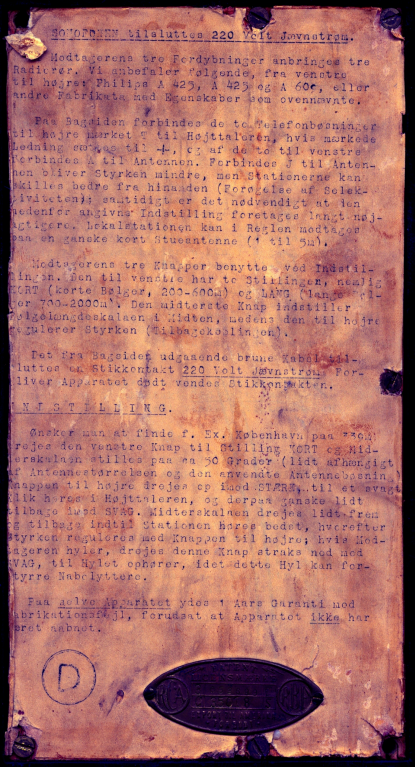 SONOFONEN tilsluttes 220 Volt Jævnstrøm.
Modtagerens tre Fordybninger anbringes tre
Radiorør. Vi anbefaler følgende, fra venstre
til højre: Philips A 425, A 425 og A 609, eller
andre Fabrikata med Egenskaber som ovennævnte.
Paa Bagsiden forbindes de to Telefonbøsninger
til højre mærket T til Højttaleren, hvis mærkede
Ledning sættes til +, og af de to til venstre
forbindes A til Antennen. Forbindes J til Anten-
nen bliver Styrken mindre, men Stationerne kan
skilles bedre fra hinanden (Forøgelse af Selek-
tiviteten); samtidigt er det nødvendigt at den
nedenfor angivne Indstilling foretages langt nøj-
agtigere. Lokalstationen kan i Reglen modtages
paa en ganske kort Stueantenne (1 til 5m).
Modtagerens tre Knapper benyttes ved Indstil-
lingen. Den til venstre har to Stillinger, nemlig
KORT (korte Bølger, 200-600m) og LANG (lange Bøl-
ger 700-2000m). Den midterste Knap indstiller
Bølgelængdeskalaen i Midten, medens den til højre
regulerer Styrken (Tilbagekoblingen).
Det fra Bagsiden udgaaende brune Kabel til-
sluttes en Stikkontakt 220 Volt Jævnstrøm. For-
bliver Apparatet dødt vendes Stikkontakten.
INDSTILLING.
Ønsker man at finde f. Ex. København paa
drejes den venstre Knap til Stilling KORT og Mid-
terskalaen stilles paa ca 50 Grader (lidt afhængigt
af Antennestørrelsen og den anvendte Antennebøsning)
Knappen til højre drejes op imod STÆRK, til et svagt
Klik høres i Højttaleren, og derpaa ganske lidt
tilbage imod SVAG. Midterskalaen drejes lidt frem
og tilbage indtil Stationen høres bedst, hvorefter
Styrken reguleres med Knappen til højre; hvis Mod-
tageren hyler, drejes denne Knap straks ned mod
SVAG, til Hylet ophører, idet dette Hyl kan for-
styrre Nabolyttere.
Paa selve Apparatet ydes 1 Aars Garanti mod
Fabrikationsfejl, forudsat at Apparatet ikke har
været aabnet.
D